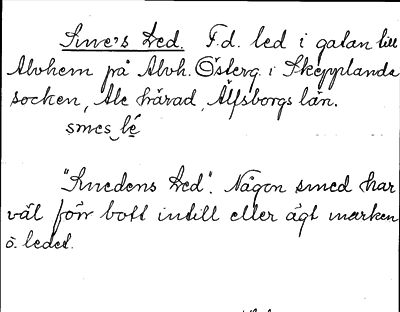 Sme's Led. F.d. led i gatan till
Alvhem på Alvh. Österg. i Skepplanda
socken, Ale härad, Älfsborgs län.
smes lé
"Smedens Led". Någon smed har
väl förr bott intill eller ägt marken
o. ledet.